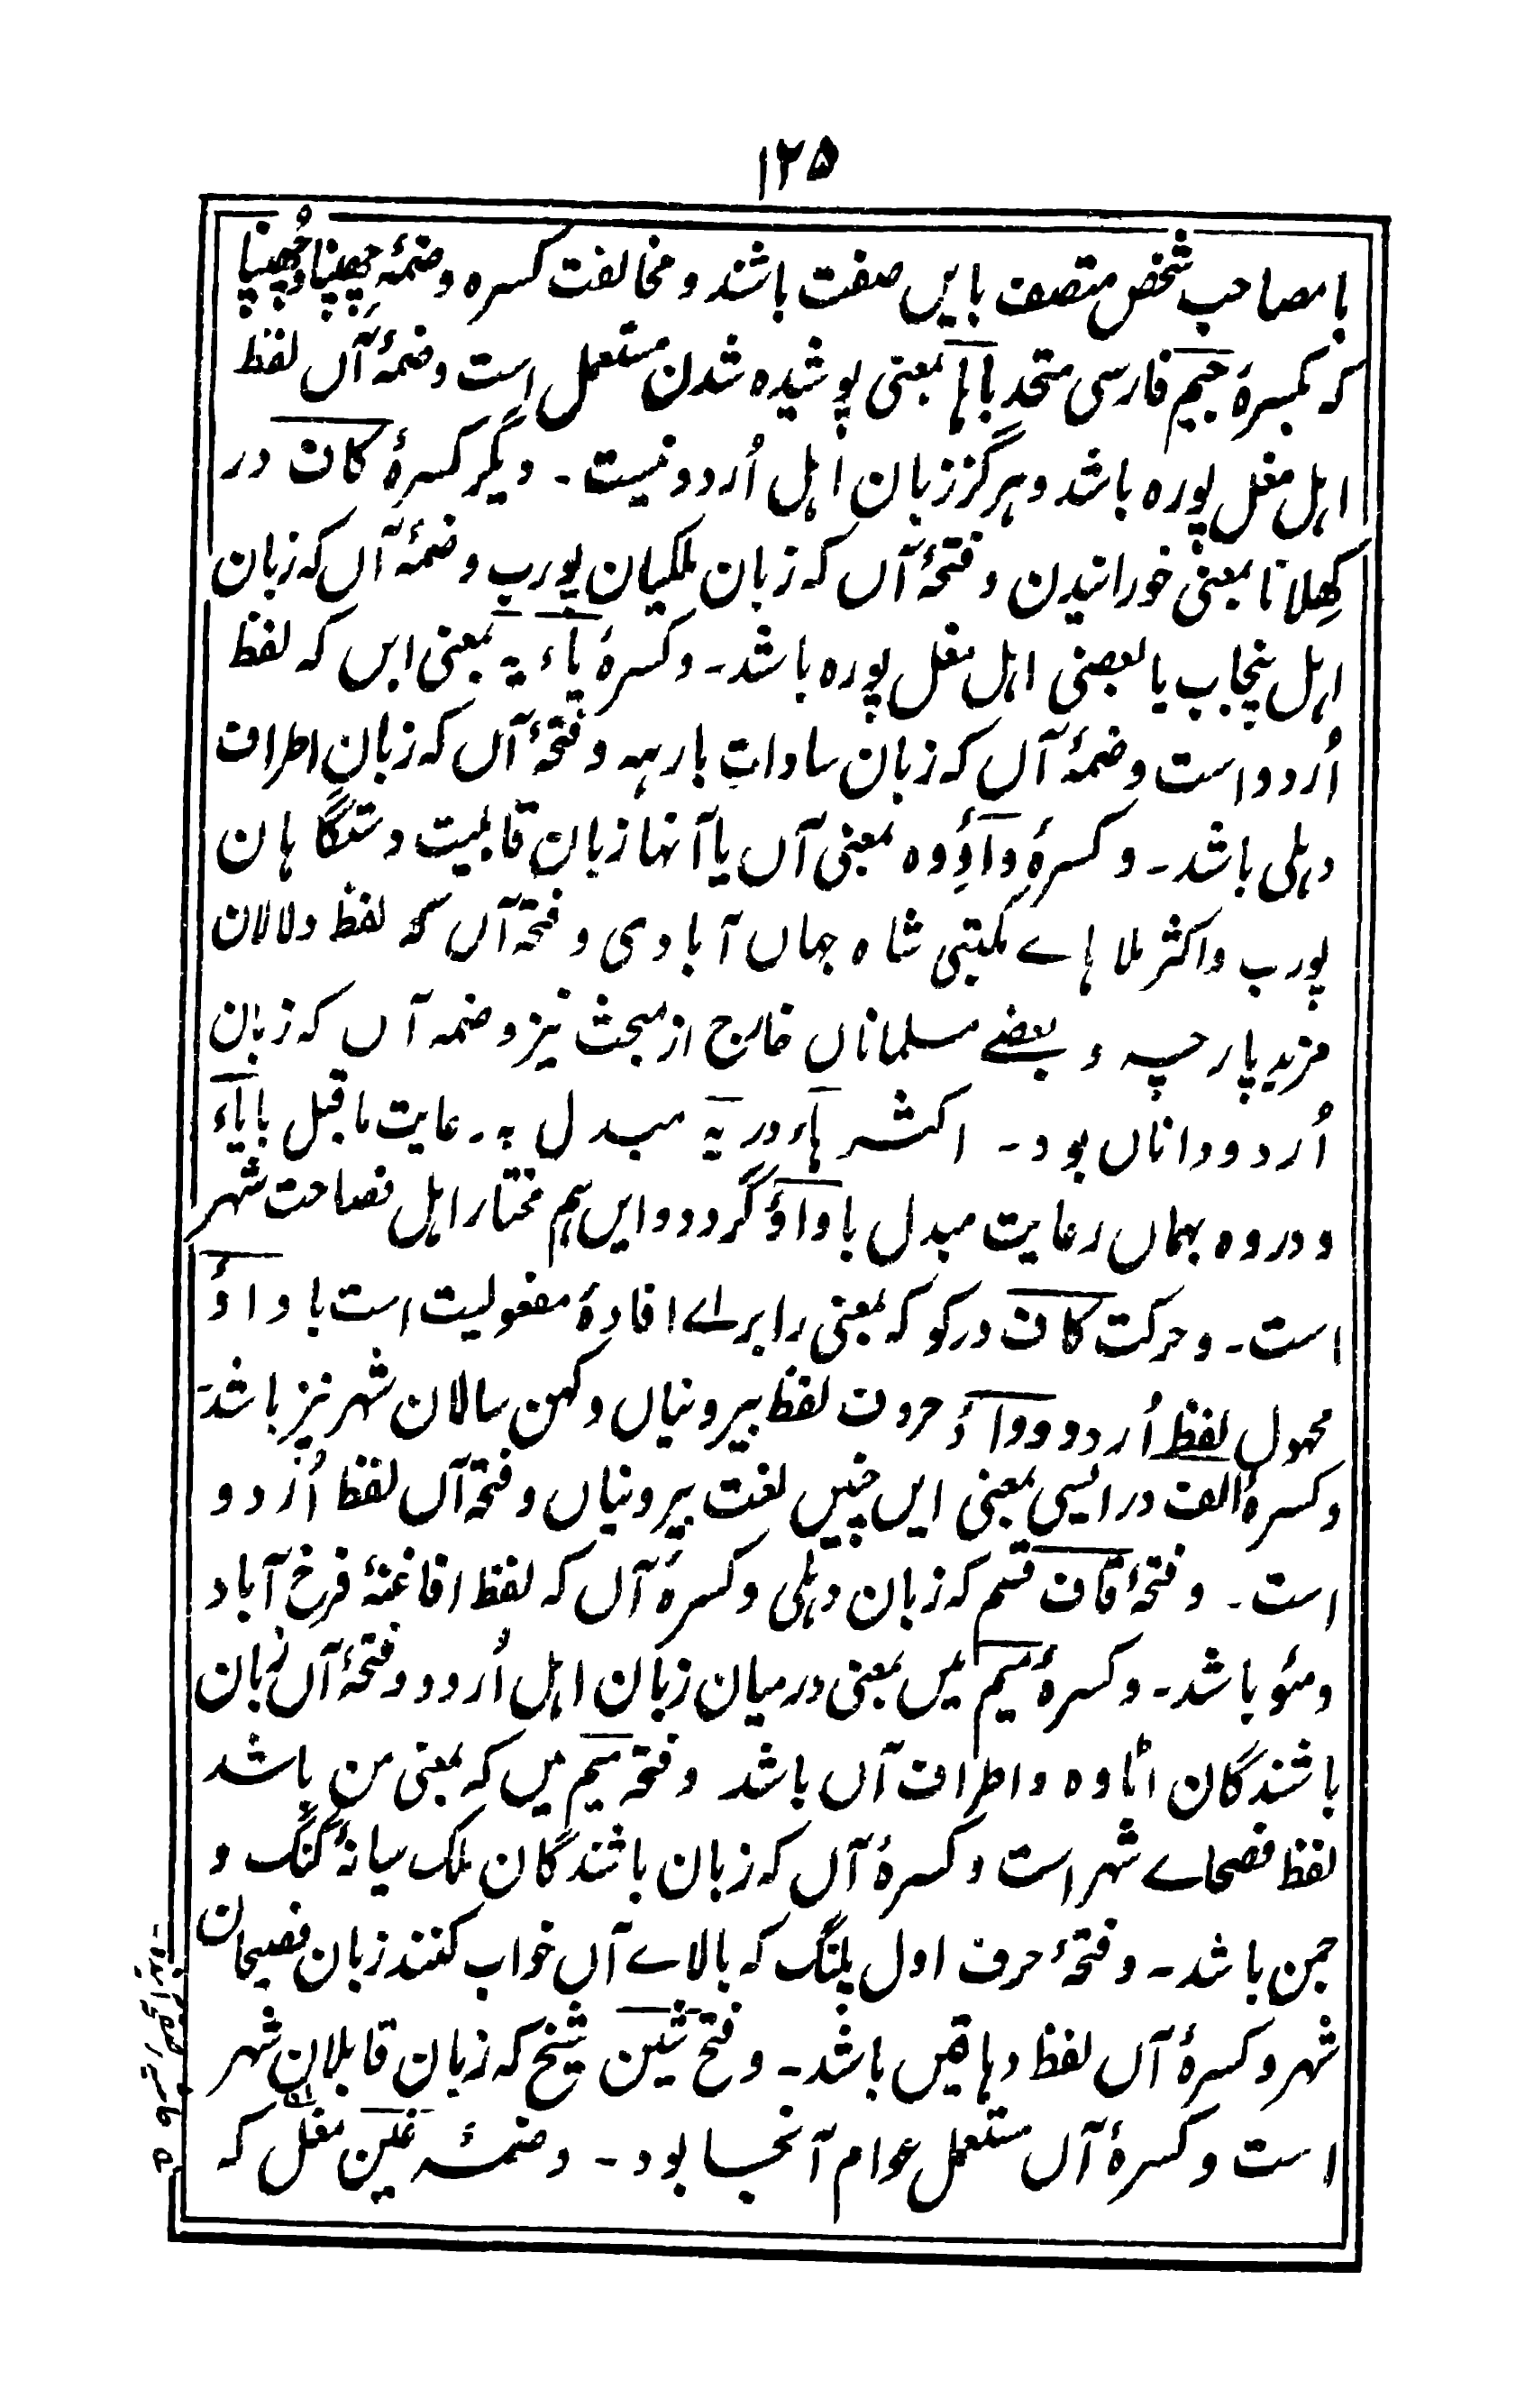 ۱۲۵
با مصاحب شخص متصف بایں صفت باشند و مخالفت کسره و ضمۂ چِھپنا و چُھپنا
کہ بکسرۂ جیم فارسی متحد باہا بمعنی پوشیده شدن مستعمل است و ضمۂ آں لفظ
اہل مغل پوره باشد و ہرگز زبان اہل اُردو نیست ۔ دیگر کسرۂ کاف در
کِھلانا بمعنی خورانیدن و فتحۂ آں کہ زبان ملکیان پورب و ضمۂ آں کہ زبان
اہل پنجاب یا بعضی اہل مغل پوره باشد ۔ و کسرۂ یاء یہ بمعنی ایں کہ لفظ
اُردو است و ضمۂ آں کہ زبان ساداتِ بارہہ و فتحۂ آں کہ زبانِ اطراف
دہلی باشد ۔ و کسرۂ واوِ وه بمعنی آں یا آنہا زبان قابلیت دستگاہان
پورب و اکثر ملا ہاے مکتبی شاه جہاں آبادی و فتحۂ آں کہ لفظ دلالان
مزید پارچہ و بعضے مسلماناں خارج از مبحث نیز و ضمہ آں کہ زبان
اُردو داناں بود ۔ اکثر ہاء در یہ مبدل بہ رعایت ماقبل بایاء
و در وه بہماں رعایت مبدل با واؤ گردد و ایں ہم مختار اہل فصاحت شہر
است ۔ و حرکت کاف در کو کہ بمعنی را براے افادۂ مفعولیت است با واؤ
مجہول لفظ اُردو و واؤ حروف لفظ بیرونیاں و کہن سالان شہر نیز باشد
و کسرۂ الف در ایسی بمعنی ایں چنیں لغت بیرونیاں و فتحۂ آں لفظ اُردو
است ۔ و فتحۂ قاف قسم کہ زبان دہلی و کسرۂ آں کہ لفظ افاغنۂ فرخ آباد
و مئو باشد ۔ و کسرۂ میم میں بمعنی درمیان زبان اہل اُردو و فتحۂ آں زبان
باشندگان اٹاوه و اطراف آں باشد و فتحہ میم میں کہ بمعنی من باشد
لفظ فصحاے شہر است و کسرۂ آں کہ زبان باشندگان ملک میانۂ گنگ و
جمن باشد ۔ و فتحۂ حرف اول پلنگ کہ بالاے آں خواب کنند زبان فصیحان
شہر و کسرۂ آں لفظ دہاقیں باشد ۔ و فتح شین شیخ کہ زبان قابلان شہر
است و کسرۂ آں مستعمل عوام آنجا بود ۔ و ضمہ غین مغل کہ